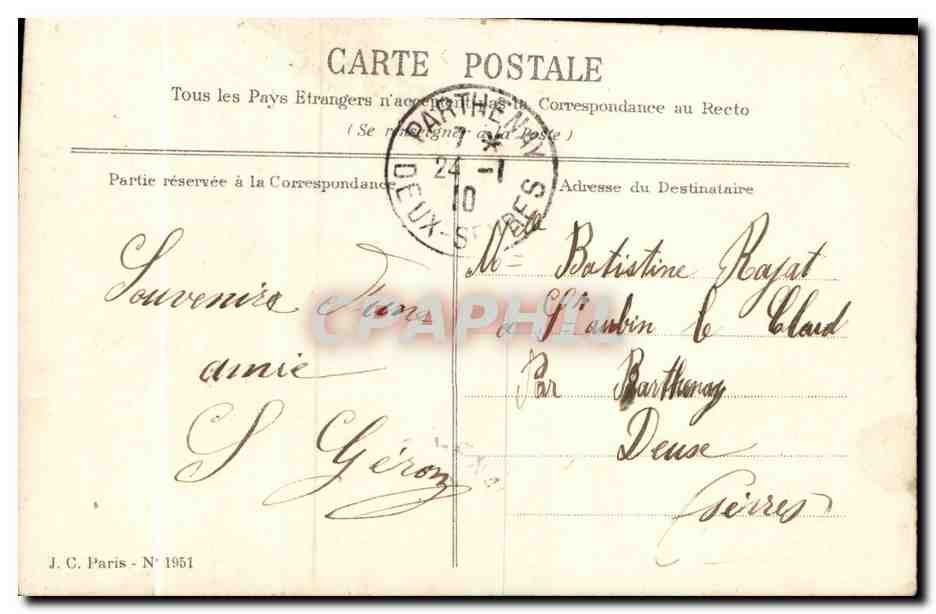 CARTE POSTALE
Tous les Pays Etrangers n'acceptent pas la Correspondance au Recto
(Se renseigner à la Poste)
PARTHENAY
7 *
24 -1
10
DEUX-SEVRES
Partie réservée à la Correspondance
Adresse du Destinataire
Souvenirs d'une
amie
S Géron
Mlle Batistine Rajat
a St aubin le Cloud
Par Parthenay
Deuse
Sèvres
CPAPHIL
J. C. Paris - N° 1951